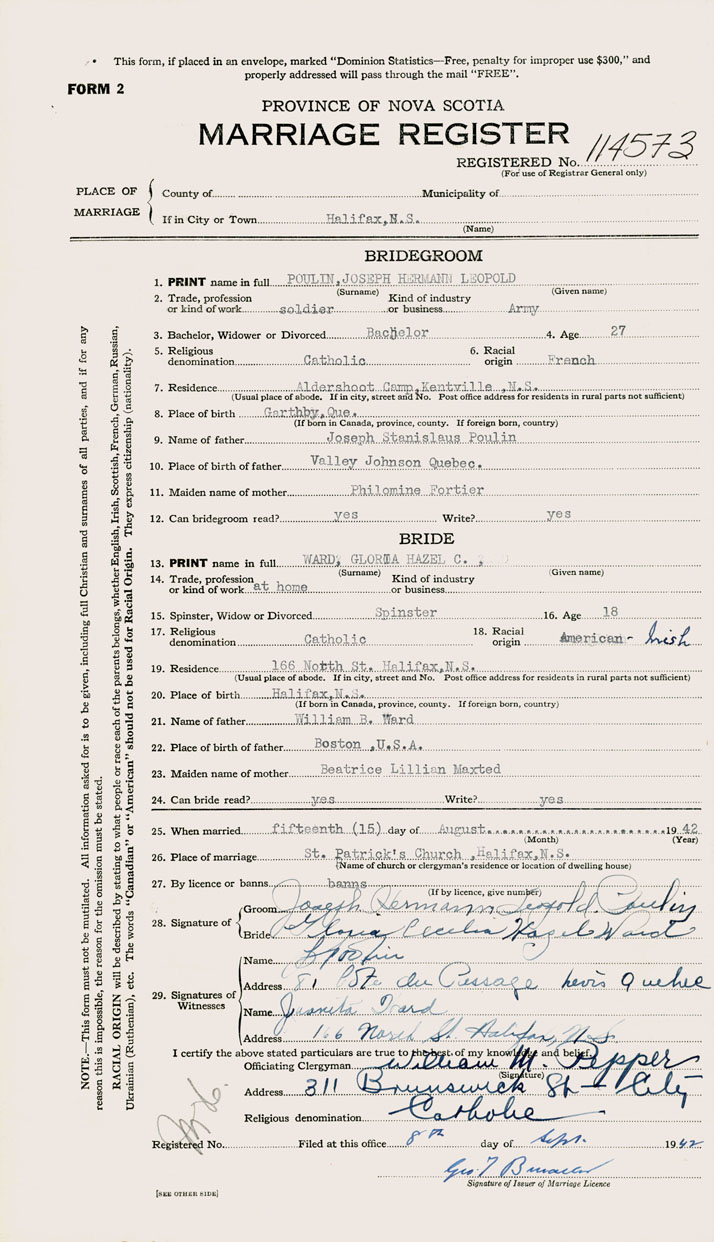 This form, if placed in an envelope, marked "Dominion Statistics—Free, penalty for improper use $300," and
properly addressed will pass through the mail "FREE".
FORM 2
PROVINCE OF NOVA SCOTIA
MARRIAGE REGISTER
REGISTERED No. 114573
(For use of Registrar General only)
PLACE OF MARRIAGE
County of Municipality of
If in City or Town Halifax,N.S.
(Name)
BRIDEGROOM
1. PRINT name in full POULIN,JOSEPH HERMANN LEOPOLD
(Surname) (Given name)
2. Trade, profession or kind of work soldier Kind of industry or business Army
3. Bachelor, Widower or Divorced Bachelor 4. Age 27
5. Religious denomination Catholic 6. Racial origin French
7. Residence Aldershoot Camp,Kentville ,N.S.
(Usual place of abode. If in city, street and No. Post office address for residents in rural parts not sufficient)
8. Place of birth Garthby,Que.
(If born in Canada, province, county. If foreign born, country)
9. Name of father Joseph Stanislaus Poulin
10. Place of birth of father Valley Johnson Quebec.
11. Maiden name of mother Philomine Fortier
12. Can bridegroom read? yes Write? yes
BRIDE
13. PRINT name in full WARD, GLORIA HAZEL C.
(Surname) (Given name)
14. Trade, profession or kind of work at home Kind of industry or business
15. Spinster, Widow or Divorced Spinster 16. Age 18
17. Religious denomination Catholic 18. Racial origin American - Irish
19. Residence 166 North St. Halifax,N.S.
(Usual place of abode. If in city, street and No. Post office address for residents in rural parts not sufficient)
20. Place of birth Halifax,N.S.
(If born in Canada, province, county. If foreign born, country)
21. Name of father William B. Ward
22. Place of birth of father Boston ,U.S.A.
23. Maiden name of mother Beatrice Lillian Maxted
24. Can bride read? yes Write? yes
25. When married fifteenth (15) day of August 1942
(Month) (Year)
26. Place of marriage St. Patrick's Church ,Halifax,N.S.
(Name of church or clergyman's residence or location of dwelling house)
27. By licence or banns banns
(If by licence, give number)
28. Signature of
Groom Joseph Hermann Leopold Poulin
Bride Gloria Cecelia Hazel Ward
29. Signatures of Witnesses
Name
Address 81 Côte du Passage Levis Quebec
Name Juanita Ward
Address 166 North St. Halifax, N.S.
I certify the above stated particulars are true to the best of my knowledge and belief.
Officiating Clergyman William M. Pepper
(Signature)
Address 311 Brunswick St - City
Religious denomination Catholic
Registered No. Filed at this office 8th day of Sept. 1942
Geo T
Signature of Issuer of Marriage Licence
[SEE OTHER SIDE]
NOTE.—This form must not be mutilated. All information asked for is to be given, including full Christian and surnames of all parties, and if for any
reason this is impossible, the reason for the omission must be stated.
RACIAL ORIGIN will be described by stating to what people or race each of the parents belongs, whether English, Irish, Scottish, French, German, Russian,
Ukrainian (Ruthenian), etc. The words "Canadian" or "American" should not be used for Racial Origin. They express citizenship (nationality).